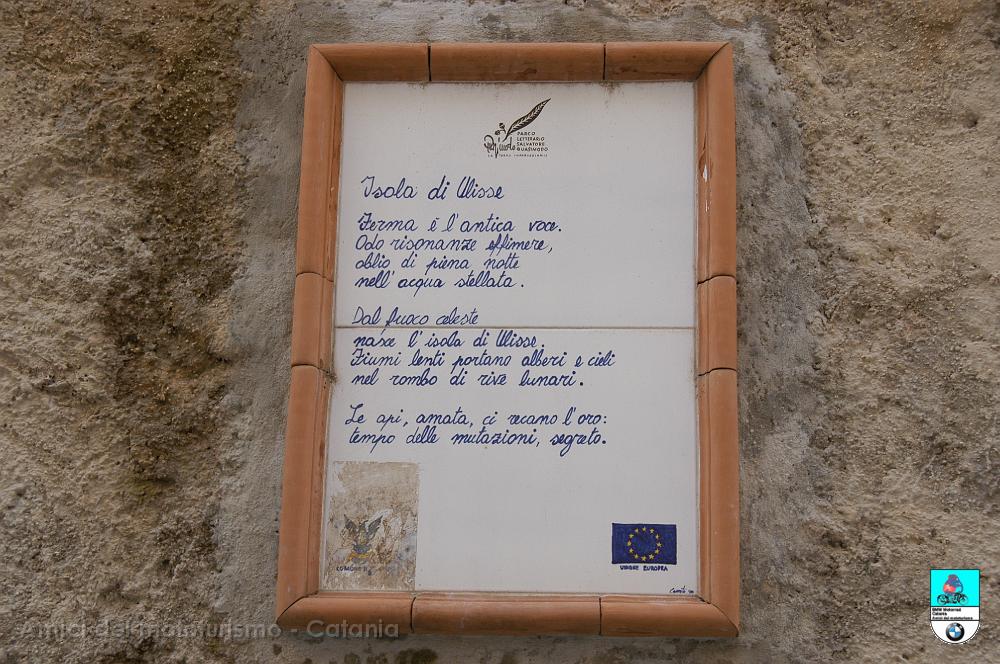 PARCO
LETTERARIO
SALVATORE
QUASIMODO
Isola di Ulisse
Ferma è l'antica voce.
Odo risonanze effimere,
oblio di piena notte
nell'acqua stellata.
Dal fuoco celeste
nasce l'isola di Ulisse.
Fiumi lenti portano alberi e cieli
nel rombo di rive lunari.
Le api, amata, ci recano l'oro:
tempo delle mutazioni, segreto.
COMUNE
UNIONE EUROPEA
Amici del mototurismo - Catania
BMW Motorrad
Catania
Amici del mototurismo
BMW